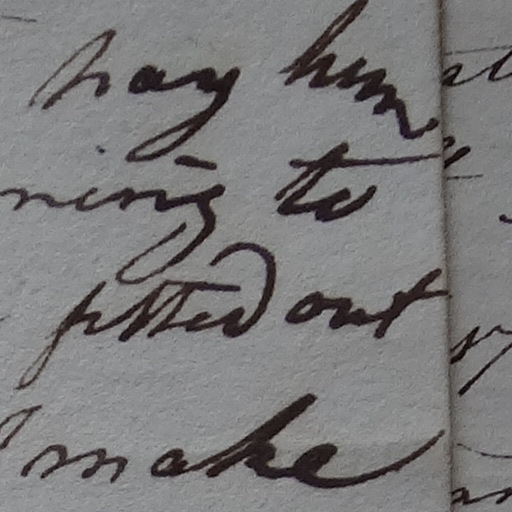 pay him
ning to
fitted out
make